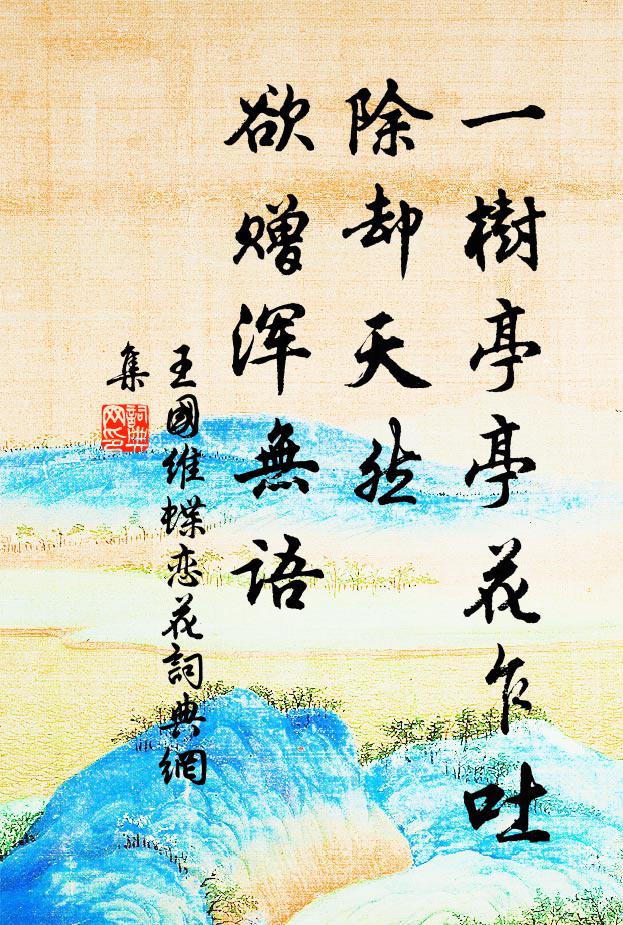 一樹亭亭花乍吐
除却天然
欲赠浑無語
王國维蝶恋花詞典網
集
詞典网印